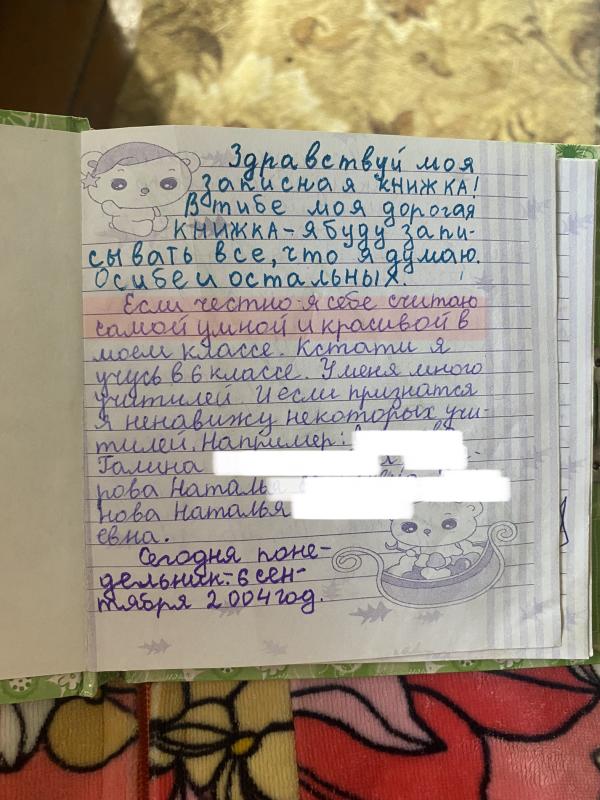 Здравствуй моя
записная книжка!
В тибе моя дорогая
книжка-я буду запи-
сывать все, что я думаю.
О сибе и остальных.
Если честно-я себе считаю
самой умной и красивой в
моем классе. Кстати я
учусь в 6 классе. У меня много
учитилей. И если признатся
я ненавижу некоторых учи-
тилей. Например:
Галина
рова Наталья
нова Наталья
евна.
Сегодня поне-
дельник-6 сен-
тября 2004 год.